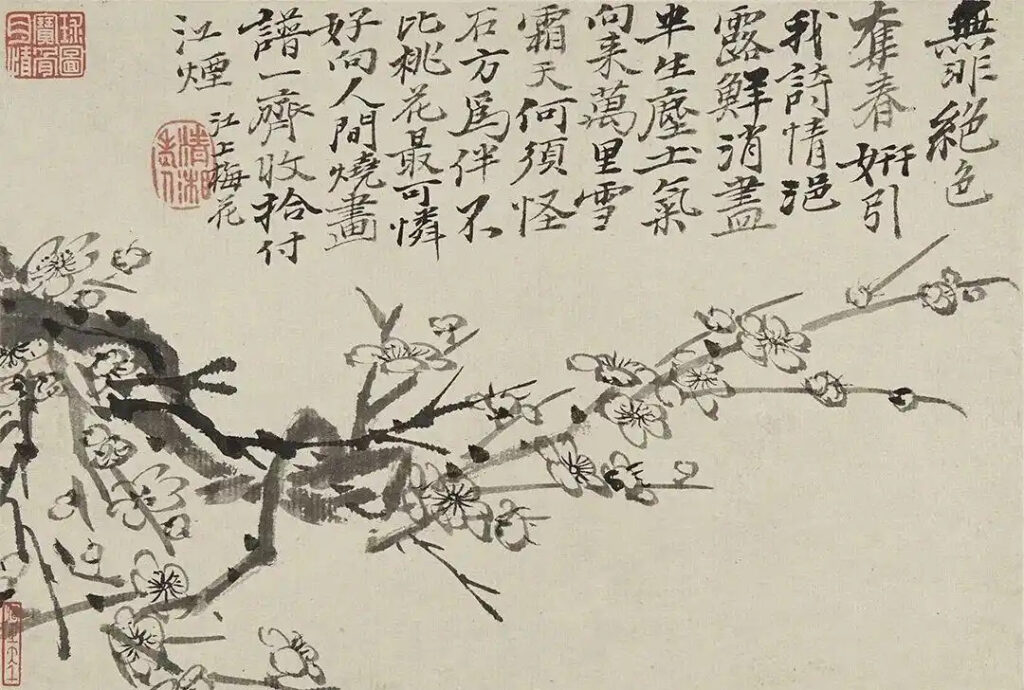 無非絕色
奪春妍引
我詩情浥
露鮮消盡
半生塵土氣
向来萬里雪
霜天何須怪
石方爲伴不
比桃花最可憐
好向人間燒畫
譜一齊收拾付
江煙
江上梅花
清湘老人